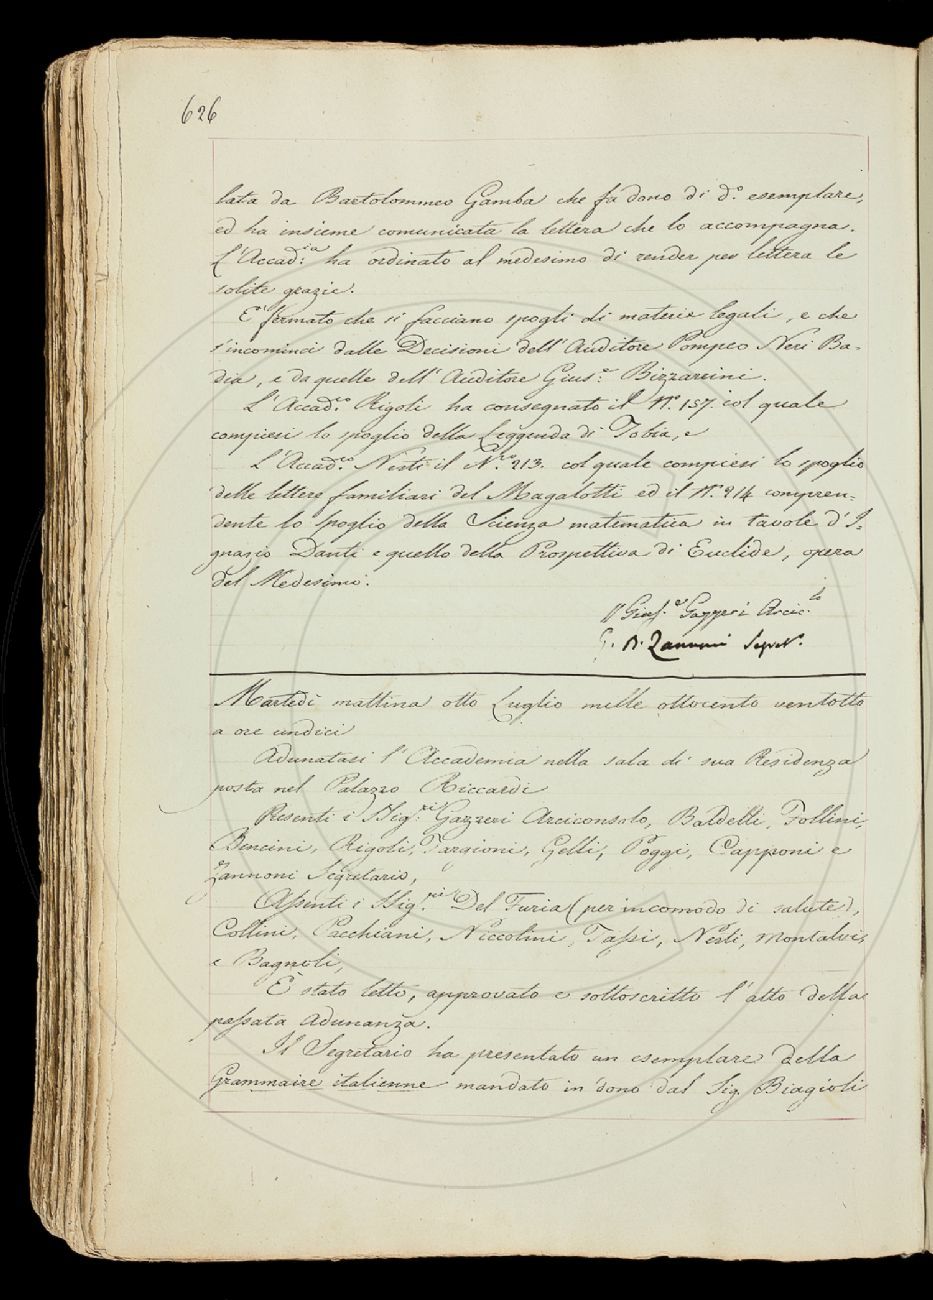 626
lata da Bartolommeo Gamba che fa dono di d.º esemplare,
ed ha insieme comunicata la lettera che lo accompagna.
L'Accad.ia ha ordinato al medesimo di render per lettera le
solite grazie.
E' fermato che si facciano spogli di materie legali, e che
s'incominci dalle Decisioni dell'Auditore Pompeo Neri Ba-
dia, e da quelle dell'Auditore Gius.e Bizzarrini.
L'Accad.co Rigoli ha consegnato il N.º 157. col quale
compiesi lo spoglio della Leggenda di Tobia, e
L'Accad.co Nesti il N.ro 213. col quale compiesi lo spoglio
delle lettere familiari del Magalotti ed il N.º 214 compren-
dente lo spoglio della Scienza matematica in tavole d'I-
gnazio Danti e quello della Prospettiva di Euclide, opera
del Medesimo.
Gius.e Gazzeri Arcic.lo
G. B. Zannoni Segret.
Martedì mattina otto Luglio mille ottocento ventotto
a ore undici
Adunatasi l'Accademia nella sala di sua Residenza
posta nel Palazzo Riccardi
Presenti i Sig.ri Gazzeri Arciconsolo, Baldelli, Follini,
Bencini, Rigoli, Targioni, Gelli, Poggi, Capponi e
Zannoni Segretario,
Assenti i Sig.ri Del Furia (per incomodo di salute),
Collini, Pacchiani, Niccolini, Tassi, Nesti, Montalvi,
e Bagnoli,
È stato letto, approvato e sottoscritto l'atto della
passata adunanza.
Il Segretario ha presentato un esemplare della
Grammaire italienne mandato in dono dal Sig. Biagioli